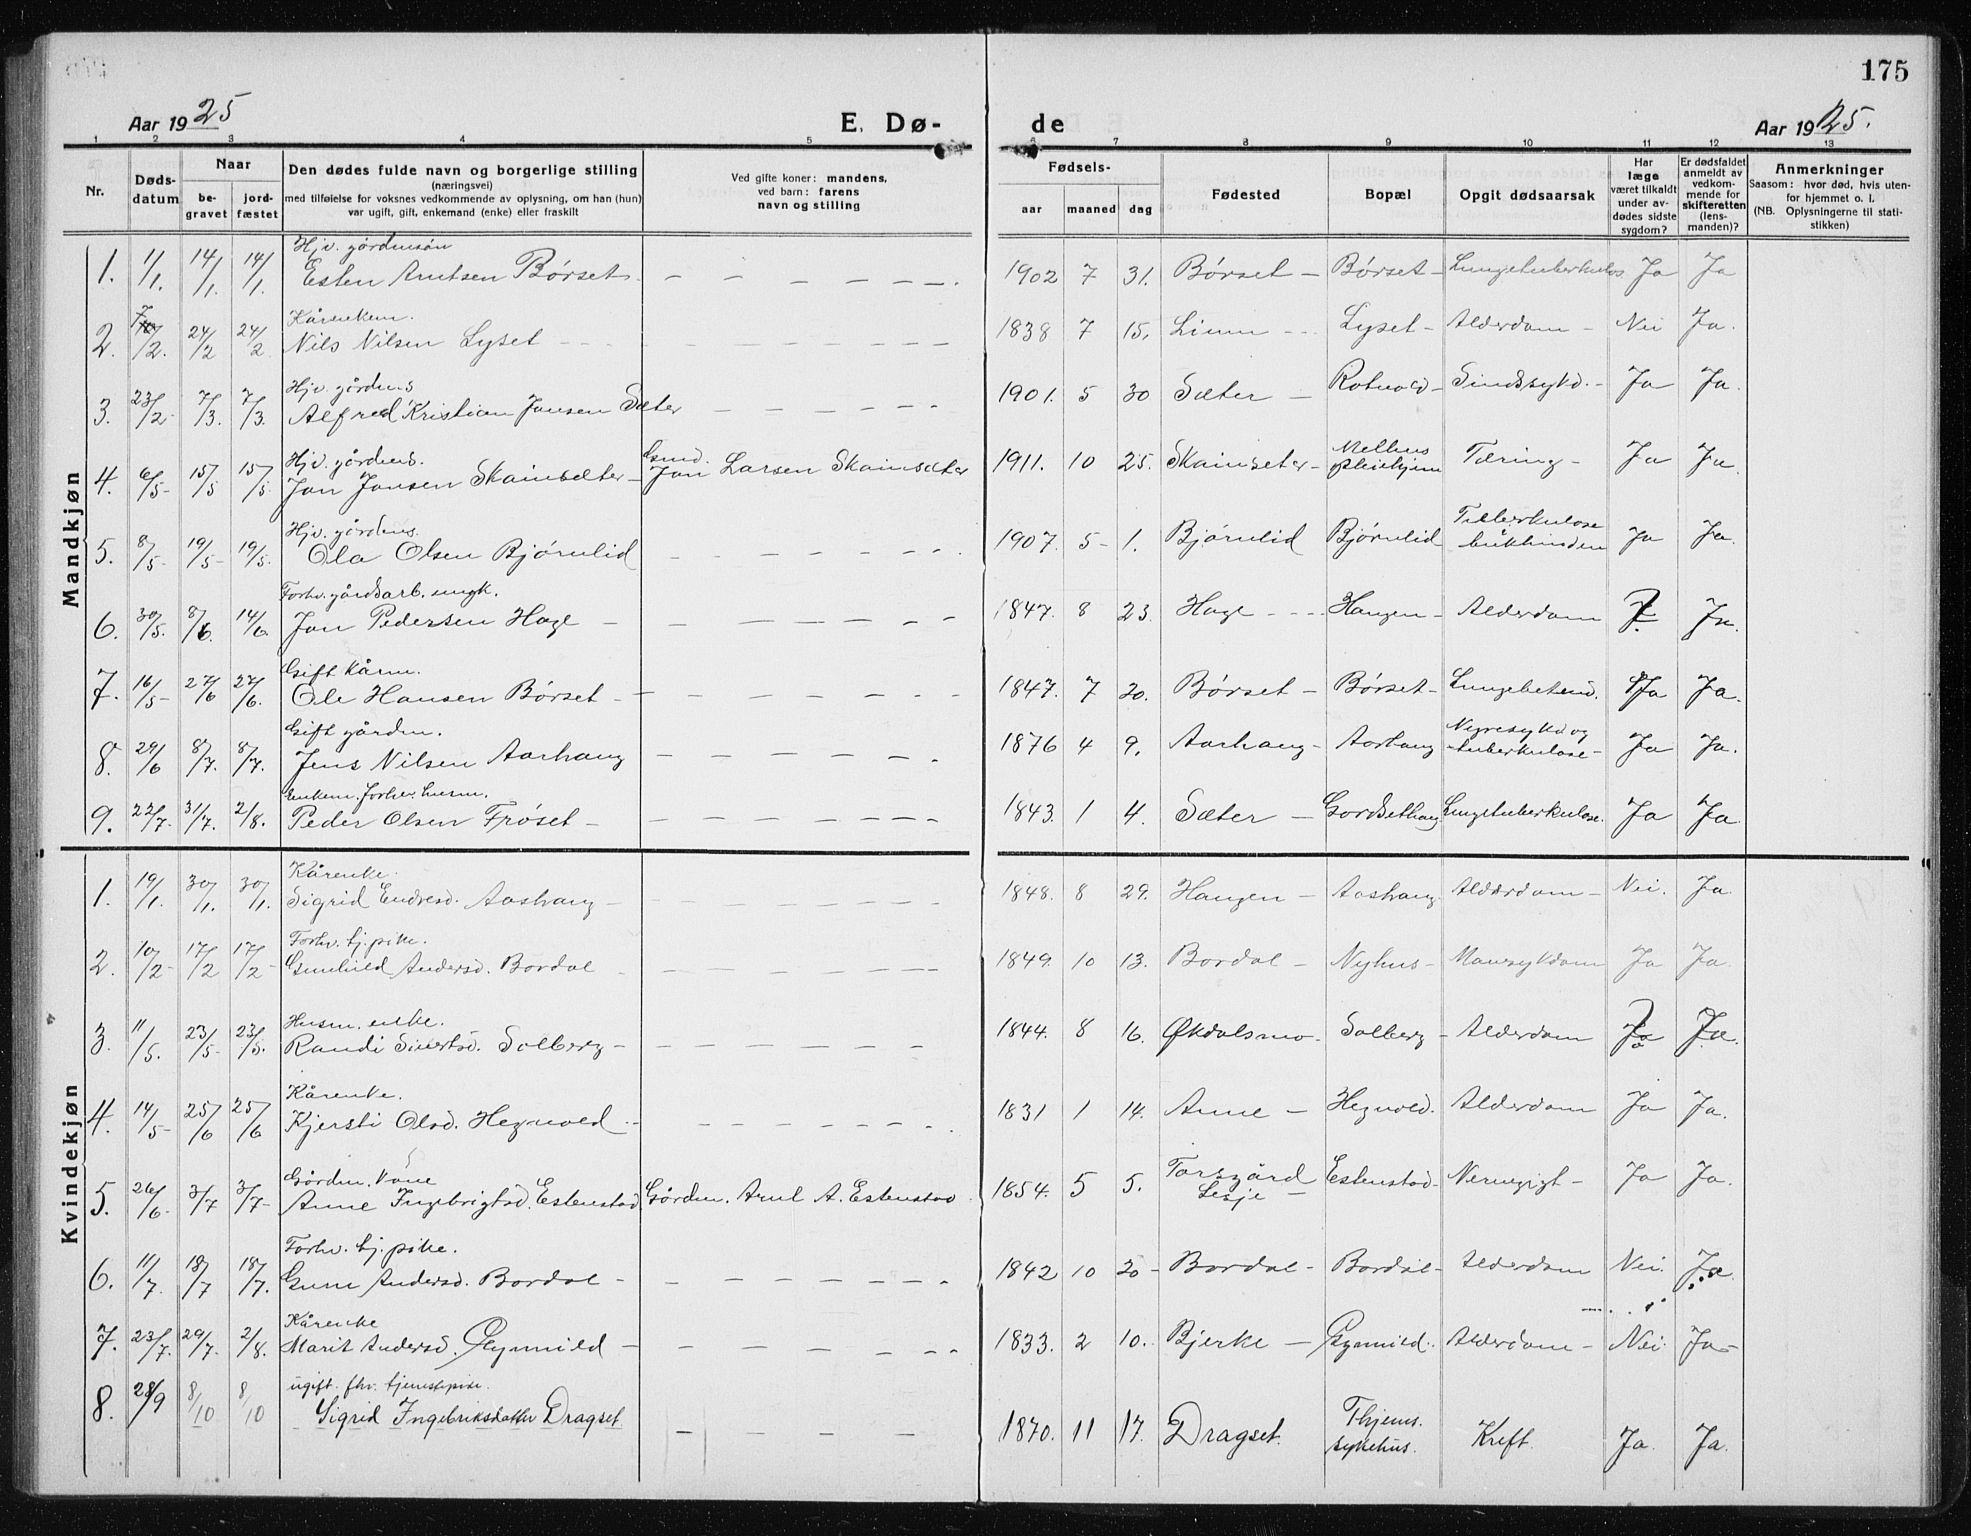 175
Aar 1925
E. Dø-
de
Aar 1925.
1 2 3 4 5 6 7 8 9 10 11 12 13
Nr.
Døds-
datum
Naar
be-
gravet
jord-
fæstet
Den dødes fulde navn og borgerlige stilling
(næringsvei)
med tilføielse for voksnes vedkommende av oplysning, om han (hun)
var ugift, gift, enkemand (enke) eller fraskilt
Ved gifte koner: mandens,
ved barn: farens
navn og stilling
Fødsels-
aar maaned dag
Fødested
Bopæl
Opgit dødsaarsak
Har
læge
været tilkaldt
under av-
dødes sidste
sygdom?
Er dødsfaldet
anmeldt av
vedkom-
mende for
skifteretten
(lens-
manden)?
Anmerkninger
Saasom: hvor død, hvis uten-
for hjemmet o. l.
(NB. Oplysningerne til stati-
stikken)
Mandkjøn
Hjv. gårdmsøn
1. 1/1. 14/1. 14/1. Esten Arntsen Børset 1902 7 31. Børset Børset Lungetuberkulos Ja Ja
Kårenkem.
2. 7/2. 24/2 24/2 Nils Nilsen Lyset 1838 7 15. Lyset Alderdom Nei Ja.
Hjv. gårdms
3. 23/2 7/3. 7/3. Alfred Kristian Jonsen Sæter 1901. 5 30 Sæter Sindssykd. Ja Ja.
Hjv. gårdms.
4. 6/5 15/5 15/5. Jon Jonsen Skainsæter Jon Larsen Skainsæter 1911. 10 25. Skainseter Melhus pleiehjem Tæring Ja Ja.
Hjv. gårdms.
5. 8/5 19/5 19/5. Ola Olsen Bjørnlid 1907. 5 1. Bjørnlid Bjørnlid Tuberkulose bukhinden Ja Ja.
Forhv. gårdsarb. ungk.
6. 30/5. 8/6. 14/6. Jon Pedersen Hage 1847. 8 23. Hage Haugen Alderdom ? Ja.
Gift kårm.
7. 16/5 27/6 27/6. Ole Hansen Børset 1847. 7 20. Børset Børset Lungebetend. Ja Ja.
Gift gårdm.
8. 29/6 8/7. 8/7. Jens Nilsen Aashaug 1876 4 9. Aashaug Aashaug Nyresykd og tuberkulose Ja Ja.
Enkem. forhv. husm.
9. 22/7. 31/7. 2/8. Peder Olsen Frøset 1843. 1 4. Sæter Gordsethaug Lungetuberkulose. Ja Ja
Kvindekjøn
Kårenke.
1. 19/1. 30/1. 30/1. Sigrid Endresd. Aashaug 1848. 8 29. Haugen Aashaug Alderdom Nei. Ja.
Forhv. tj. pike.
2. 10/2 17/2 17/2 Gunhild Andersd. Bordal 1849. 10 13. Bordal Nyhus Mavesykdom Ja Ja.
Husm. enke.
3. 11/5. 23/5 23/5. Randi Sivertsd. Solberg 1844. 8 16. Økdalsmo Solberg Alderdom Ja Ja.
Kårenke.
4. 14/5 25/6 25/6 Kjersti Olsd. Hegnvold 1831 1 14. Aune Hegnvold. Alderdom Ja Ja.
Gårdm. kone
5. 26/6 3/7 3/7 Anne Ingebrigtsd. Estenstad Gårdm. Arnt A. Estenstad 1854. 5 5. Torsgård Lesje Estenstad Nervegigt Ja Ja.
Forhv. tj. pike.
6. 11/7. 18/7 18/7. Guru Andersd. Bordal 1842 10 20 Bordal Bordal Alderdom Nei. Ja.
Kårenke
7. 23/7. 29/7. 2/8. Marit Andersd. Gynnild 1833. 2 10. Bjerke Gynnild. Alderdom Nei. Ja
ugift. fhv. tjenestepike.
8. 28/9 8/10 8/10 Sigrid Ingebriksdatter Dragset 1870. 11 17. Dragset. Thjems. sykehus. Kreft. Ja. Ja.